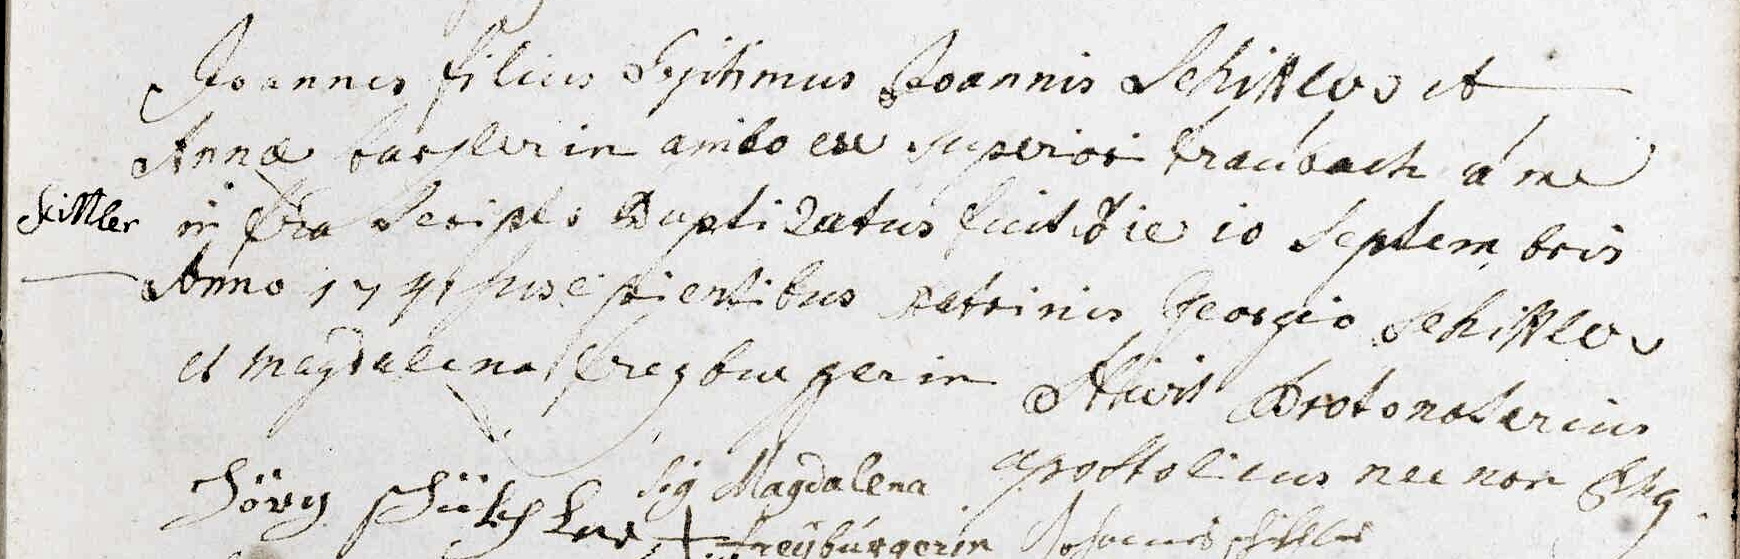 Joannes filius legitimus Joannis Schittler et
Annæ basslerin ambo ex superiori traubach a me
Schittler
infra scripto Baptizatus fuit die 10 Septembris
Anno 1741 suscipientibus patrinis Georgio Schittler
et Magdalena freyburgerin
Protonotarius
apostolicus nec non
Jörg
Sig Magdalena
freÿburgerin